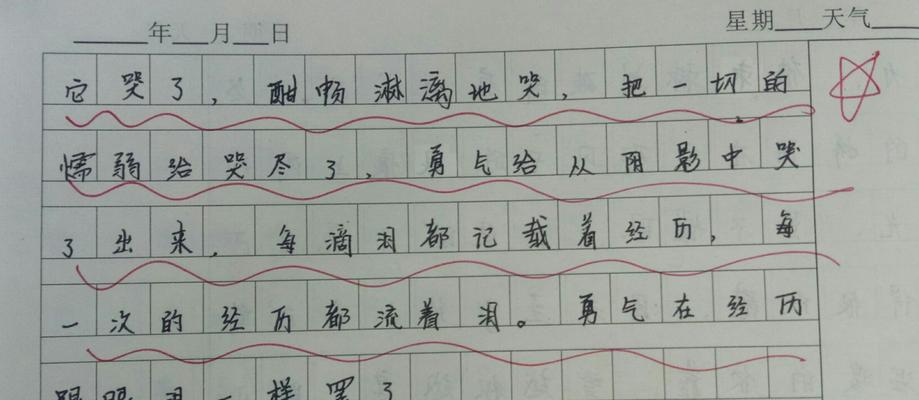 年 月 日 星期 天气
它哭了，酣畅淋漓地哭，把一切的
懦弱给哭尽了，勇气给从阴影中哭
了出来，每滴泪都记载着经历，每
一次的经历都流着泪。勇气在经历
一样罢了